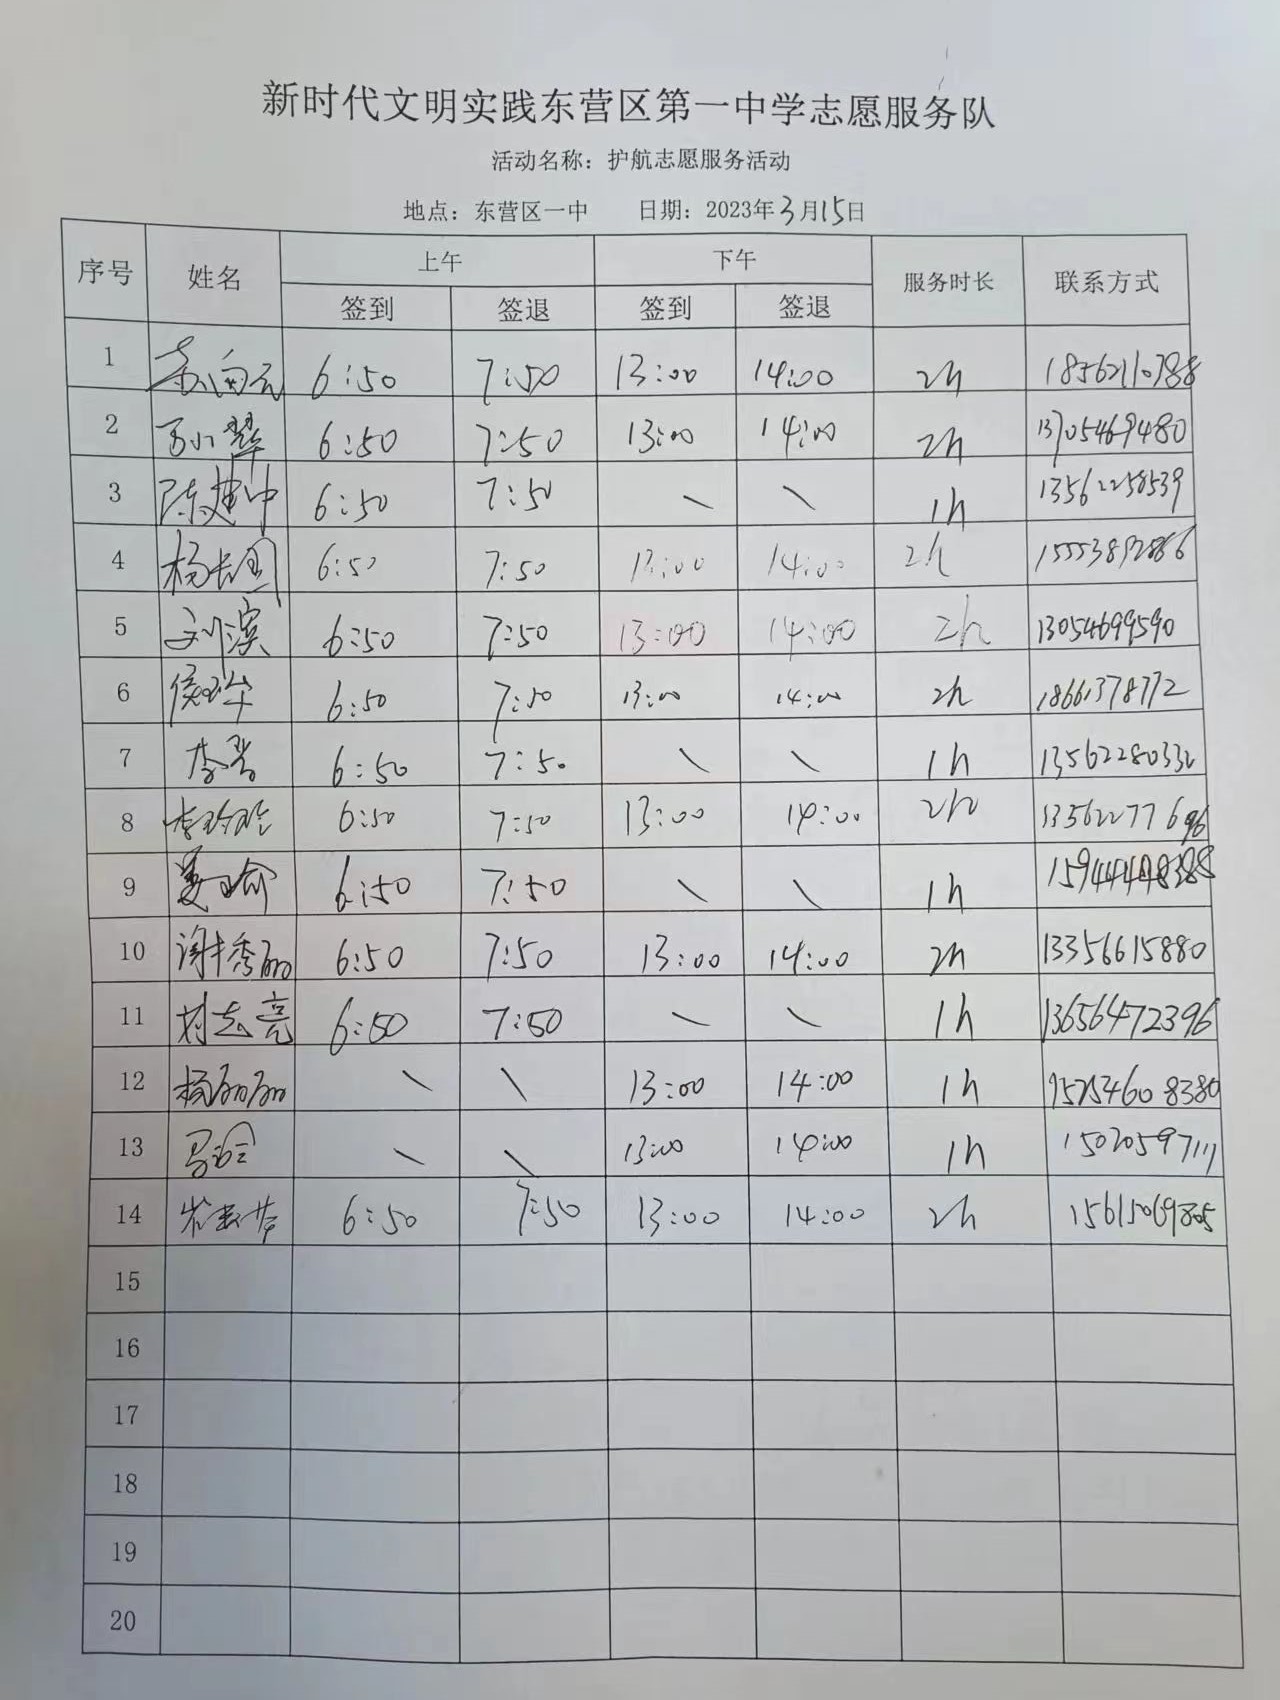 新时代文明实践东营区第一中学志愿服务队
活动名称：护航志愿服务活动
地点：东营区一中 日期：2023年3月15日
序号 姓名 上午 下午 服务时长 联系方式
签到 签退 签到 签退
1 6:50 7:50 13:00 14:00 2h 18562110788
2 6:50 7:50 13:00 14:00 2h 13705469480
3 陈建中 6:50 7:50 \ \ 1h 13562258539
4 6:50 7:50 13:00 14:00 2h 15553892866
5 刘滨 6:50 7:50 13:00 14:00 2h 13054699590
6 6:50 7:50 13:00 14:00 2h 18661378772
7 6:50 7:50 \ \ 1h
8 李玲玲 6:50 7:50 13:00 14:00 2h 13562277696
9 姜瑜 6:50 7:50 \ \ 1h
10 谢秀丽 6:50 7:50 13:00 14:00 2h 13356615880
11 志亮 6:50 7:50 \ \ 1h 13656472396
12 杨丽丽 \ \ 13:00 14:00 1h
13 \ \ 13:00 14:00 1h 15020597111
14 6:50 7:50 13:00 14:00 2h 15615069805
15
16
17
18
19
20